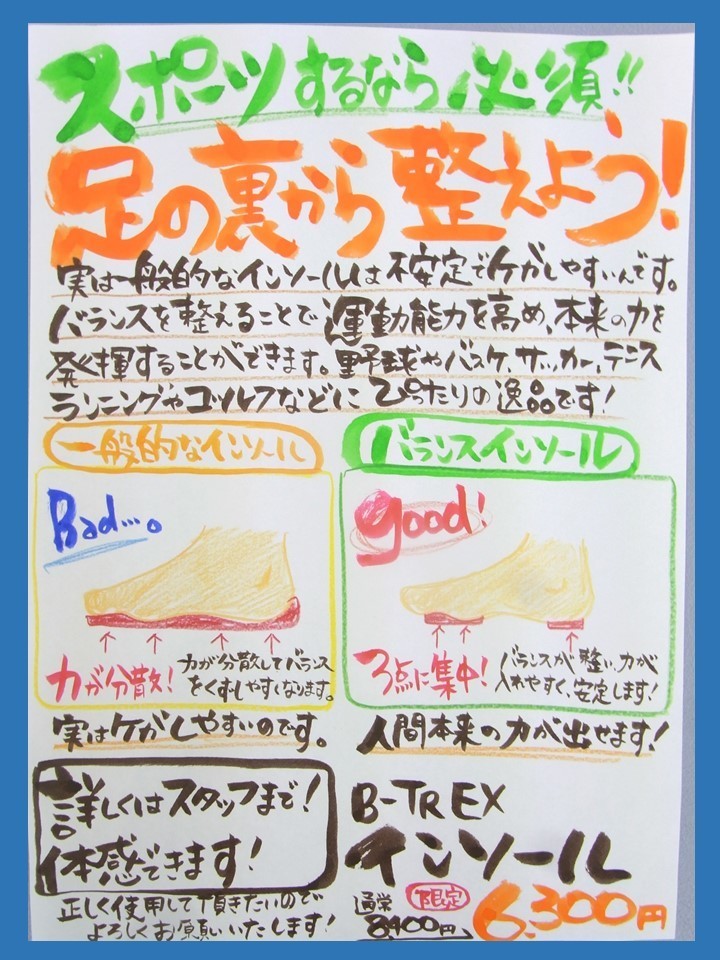 スポーツするなら必須!!
足の裏から整えよう!
実は一般的なインソールは不安定でケガしやすいんです。
バランスを整えることで運動能力を高め、本来の力を
発揮することができます。野球やバスケ、サッカー、テニス
ランニングやゴルフなどにぴったりの逸品です!
一般的なインソール
Bad…。
力が分散!
力が分散してバランス
をくずしやすくなります。
実はケガしやすいのです。
バランスインソール
good!
3点に集中!
バランスが整い、力が
入れやすく、安定します!
人間本来の力が出せます!
詳しくはスタッフまで!
体感できます!
正しく使用して頂きたいので
よろしくお願いいたします!
B-TREX
インソール
通常
8400円
限定
6,300円